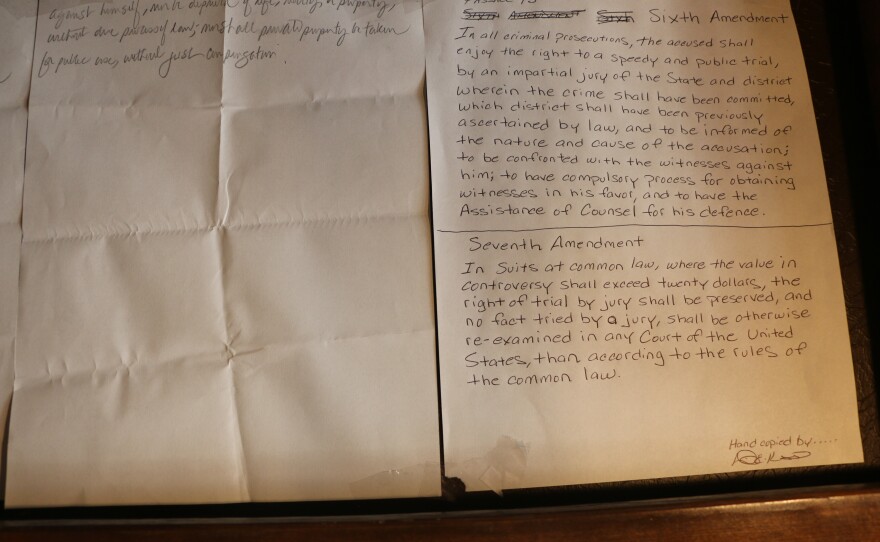 against himself, nor be deprived of life, liberty, or property,
without due process of law; nor shall private property be taken
for public use, without just compensation.
Sixth Amendment Sixth Sixth Amendment
In all criminal prosecutions, the accused shall
enjoy the right to a speedy and public trial,
by an impartial jury of the State and district
wherein the crime shall have been committed,
which district shall have been previously
ascertained by law, and to be informed of
the nature and cause of the accusation;
to be confronted with the witnesses against
him; to have compulsory process for obtaining
witnesses in his favor, and to have the
Assistance of Counsel for his defence.
Seventh Amendment
In Suits at common law, where the value in
controversy shall exceed twenty dollars, the
right of trial by jury shall be preserved, and
no fact tried by a jury, shall be otherwise
re-examined in any Court of the United
States, than according to the rules of
the common law.
Hand copied by.....